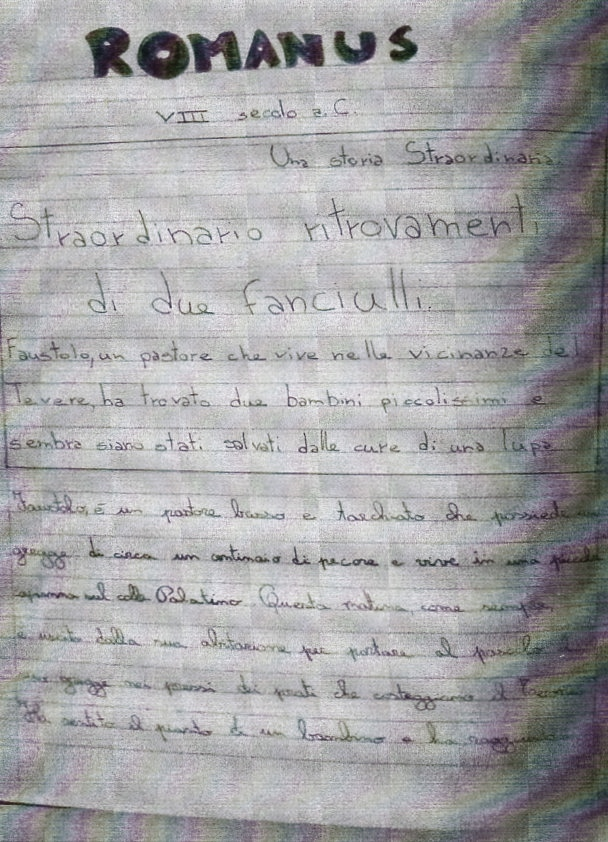 ROMANUS
VIII secolo a.C.
Una storia Straordinaria.
Straordinario ritrovamenti
di due fanciulli.
Faustolo, un pastore che vive nelle vicinanze del
Tevere, ha trovato due bambini piccolissimi e
sembra siano stati salvati dalle cure di una lupa
Faustolo, è un pastore basso e tarchiato che possiede un
gregge di circa un centinaio di pecore e vive in una piccola
capanna sul colle Palatino. Questa mattina, come sempre,
è uscito dalla sua abitazione per portare al pascolo il
suo gregge nei pressi dei prati che costeggiano il
Ha sentito il pianto di un bambino e ha